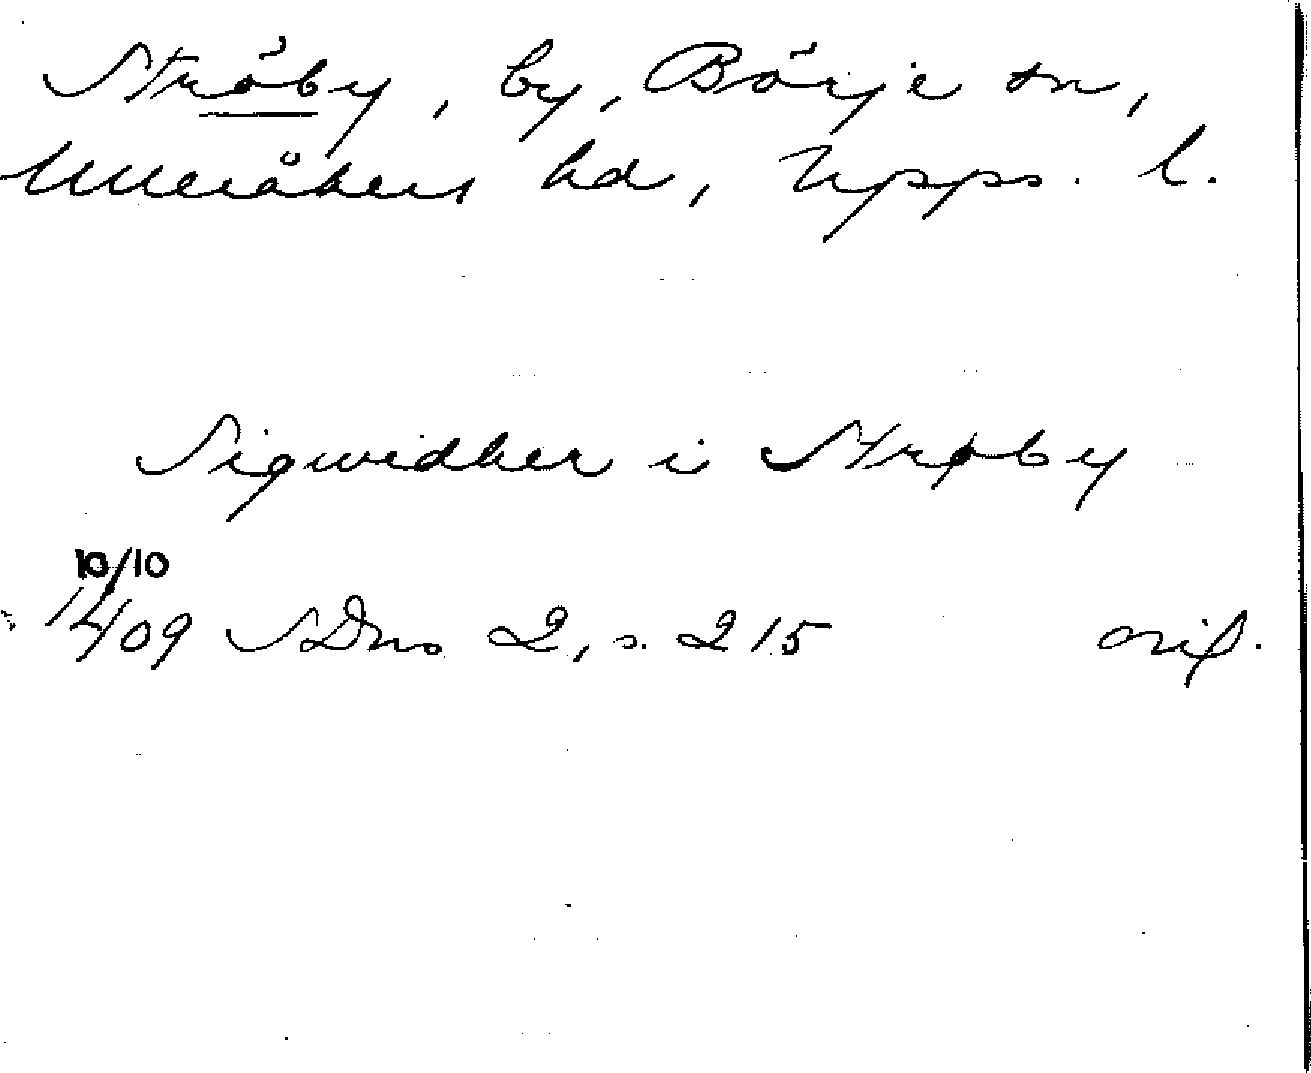 Ströby, by, Börje sn,
Ulleråkers hd, Upps. l.
Sigwidher i Strøby
10/10
1409 SDns 2, s. 215 orig.